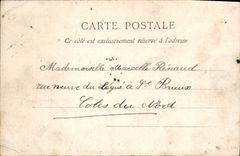 CARTE POSTALE
Ce côté est exclusivement réservé à l'adresse
Mademoiselle Marcelle Renaud
rue neuve du Légué à St Brieuc
Côtes du Nord